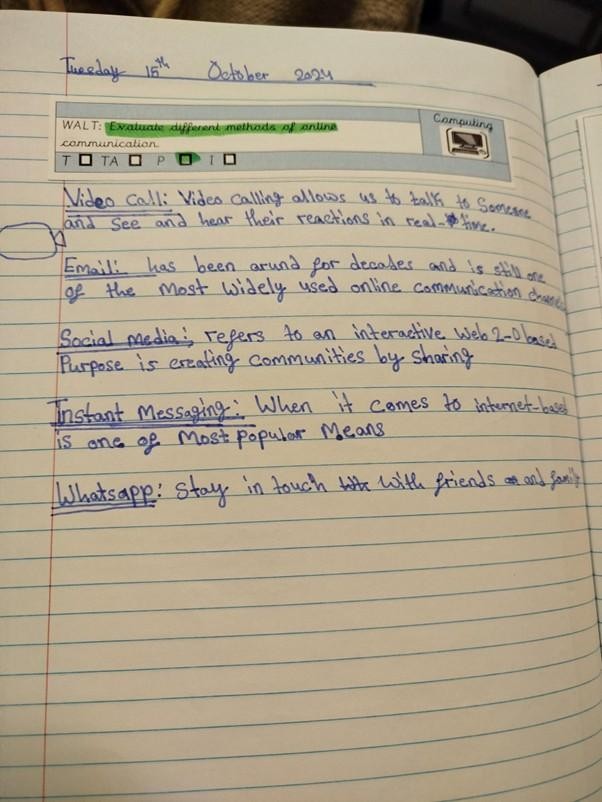 Tuesday 15th October 2024
WALT: Evaluate different methods of online
communication.
Computing
T TA P I
Video Call: Video calling allows us to talk to Someone
and See and hear their reactions in real-time.
Email: has been arund for decades and is still one
of the Most Widely used online communication
Social media: refers to an interactive Web 2-0 based
Purpose is creating communities by sharing
Instant Messaging: When it comes to internet-based
is one of Most popular Means
Whatsapp: Stay in touch with friends and family